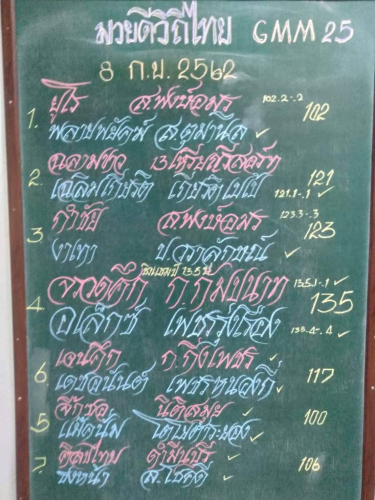 มวยดีวิถีไทย GMM 25
8 ก.ย. 2562
1. ยูโร ส.พงษ์อมร 102.2-.2 102
พลายพยัคฆ์ ✓
2. ฉลามขาว 13เหรียญรีสอร์ท 121
เฉลิมเกียรติ 121.1-.1 ✓
3 กำชัย ส.พงษ์อมร 123.3-.3 123
งาเทา ป.วราลักษณ์ ✓
ชิงแชมป์ 135 ป.
4. จรวดศึก 135.1-.1 ✓ 135
อเล็กซ์ เพชรรุ่งเรือง
6. เจนศึก ก.กิ่งเพชร ✓ 117
เดชอนันต์ ✓
5 จ๊กซอ นิติสมุย ✓ 100
เพ็ดนัม ✓
7. ศิลป์ไทย ตำมีนบุรี ✓ 106
ซงหน้า ส.โชคดี ✓